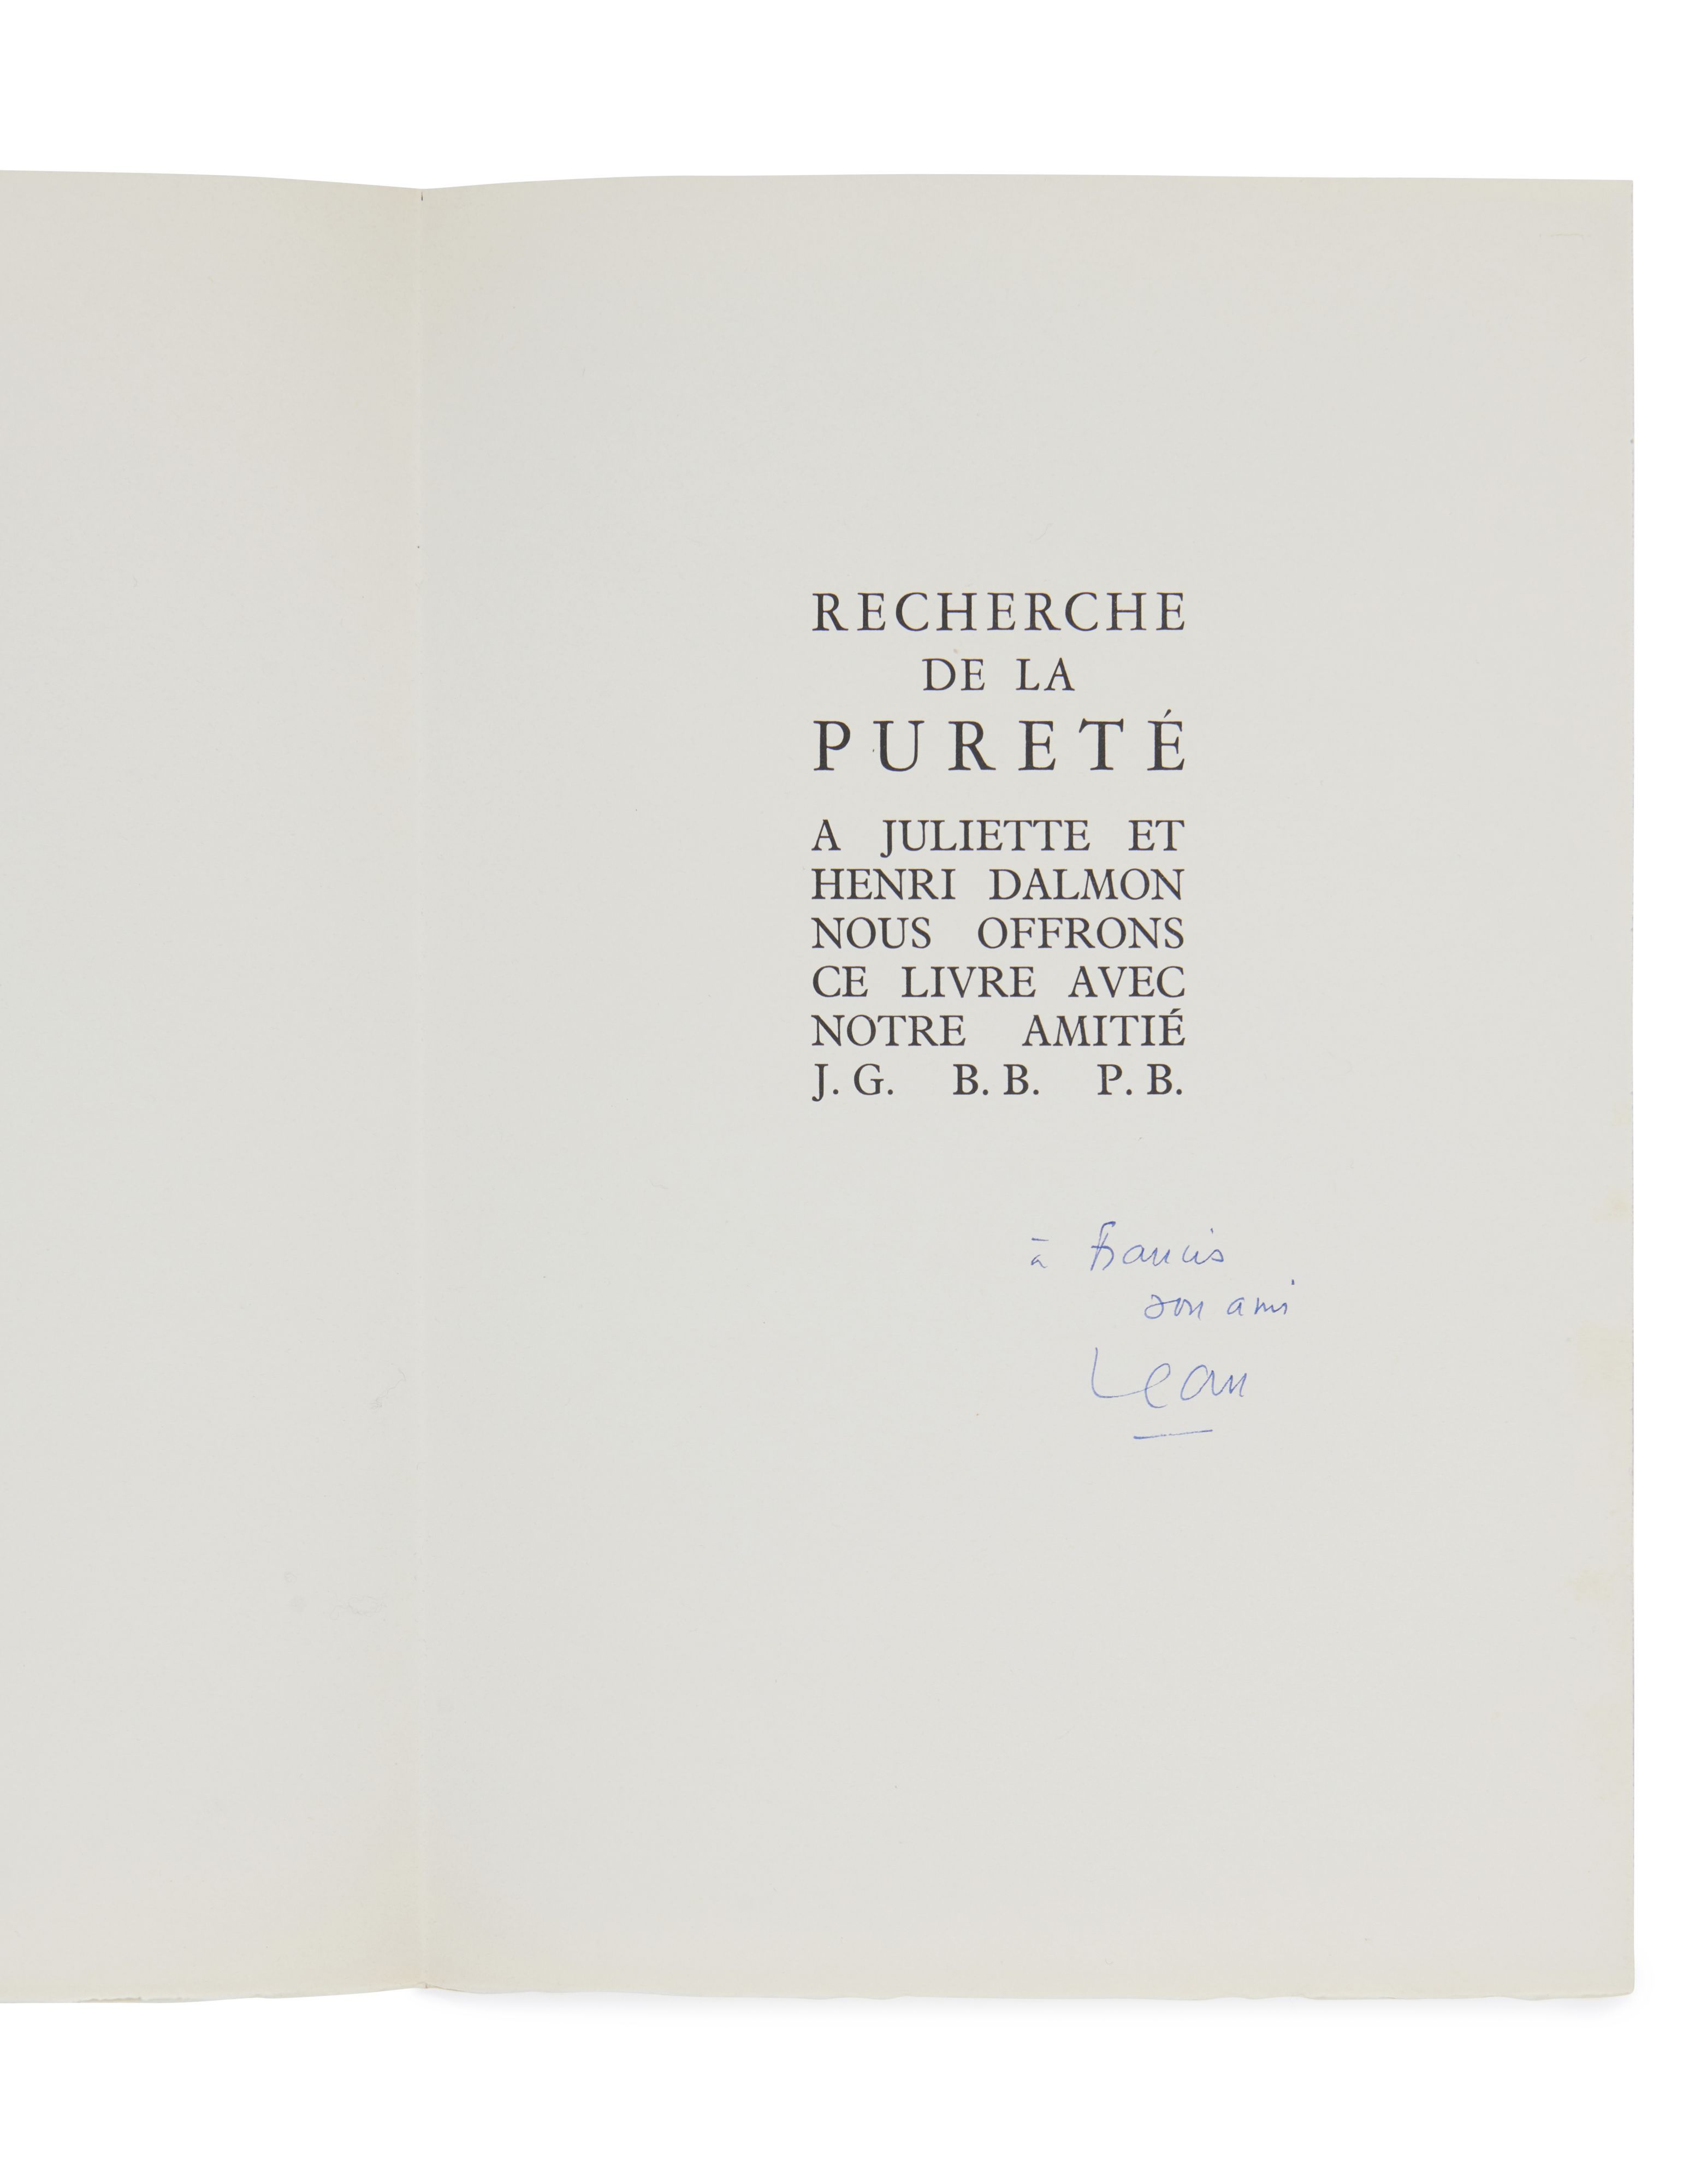 RECHERCHE
DE LA
PURETÉ
A JULIETTE ET
HENRI DALMON
NOUS OFFRONS
CE LIVRE AVEC
NOTRE AMITIÉ
J. G. B. B. P. B.
à Francis
son ami
Jean